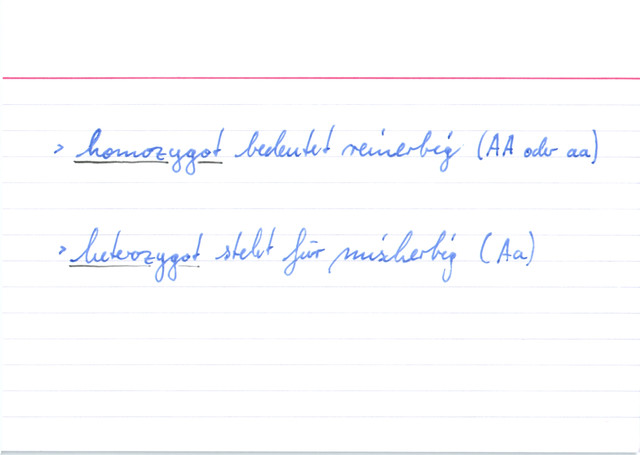 > homozygot bedeutet reinerbig (AA oder aa)
> heterozygot steht für mischerbig (Aa)